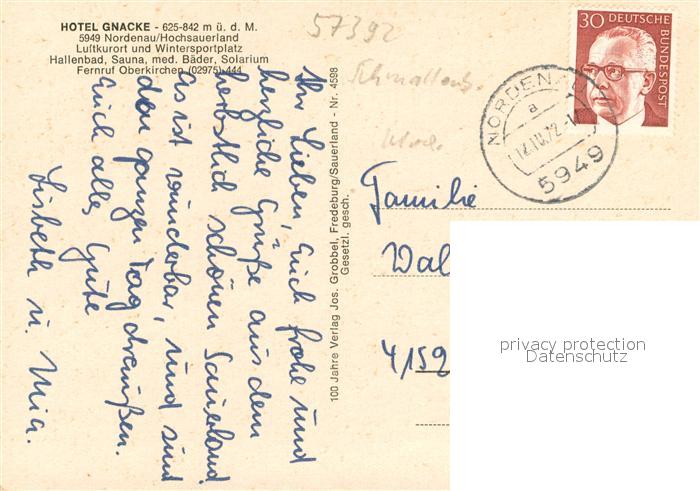 HOTEL GNACKE - 625-842 m ü. d. M.
5949 Nordenau/Hochsauerland
Luftkurort und Wintersportplatz
Hallenbad, Sauna, med. Bäder, Solarium
Fernruf Oberkirchen (02975) 444
57392
Schmallenb.
Ihr Lieben, Euch frohe und
herzliche Grüße aus dem
herbstlich schönen Sauerland.
Es ist wunderbar, und sind
den ganzen Tag draußen.
Euch alles Gute
Lisbeth u. Mia.
100 Jahre Verlag Jos. Grobbel, Fredeburg/Sauerland - Nr. 4598
Gesetzl. gesch.
30 DEUTSCHE
BUNDESPOST
NORDENAU
a
5949
Familie
Wal
4159
privacy protection
Datenschutz